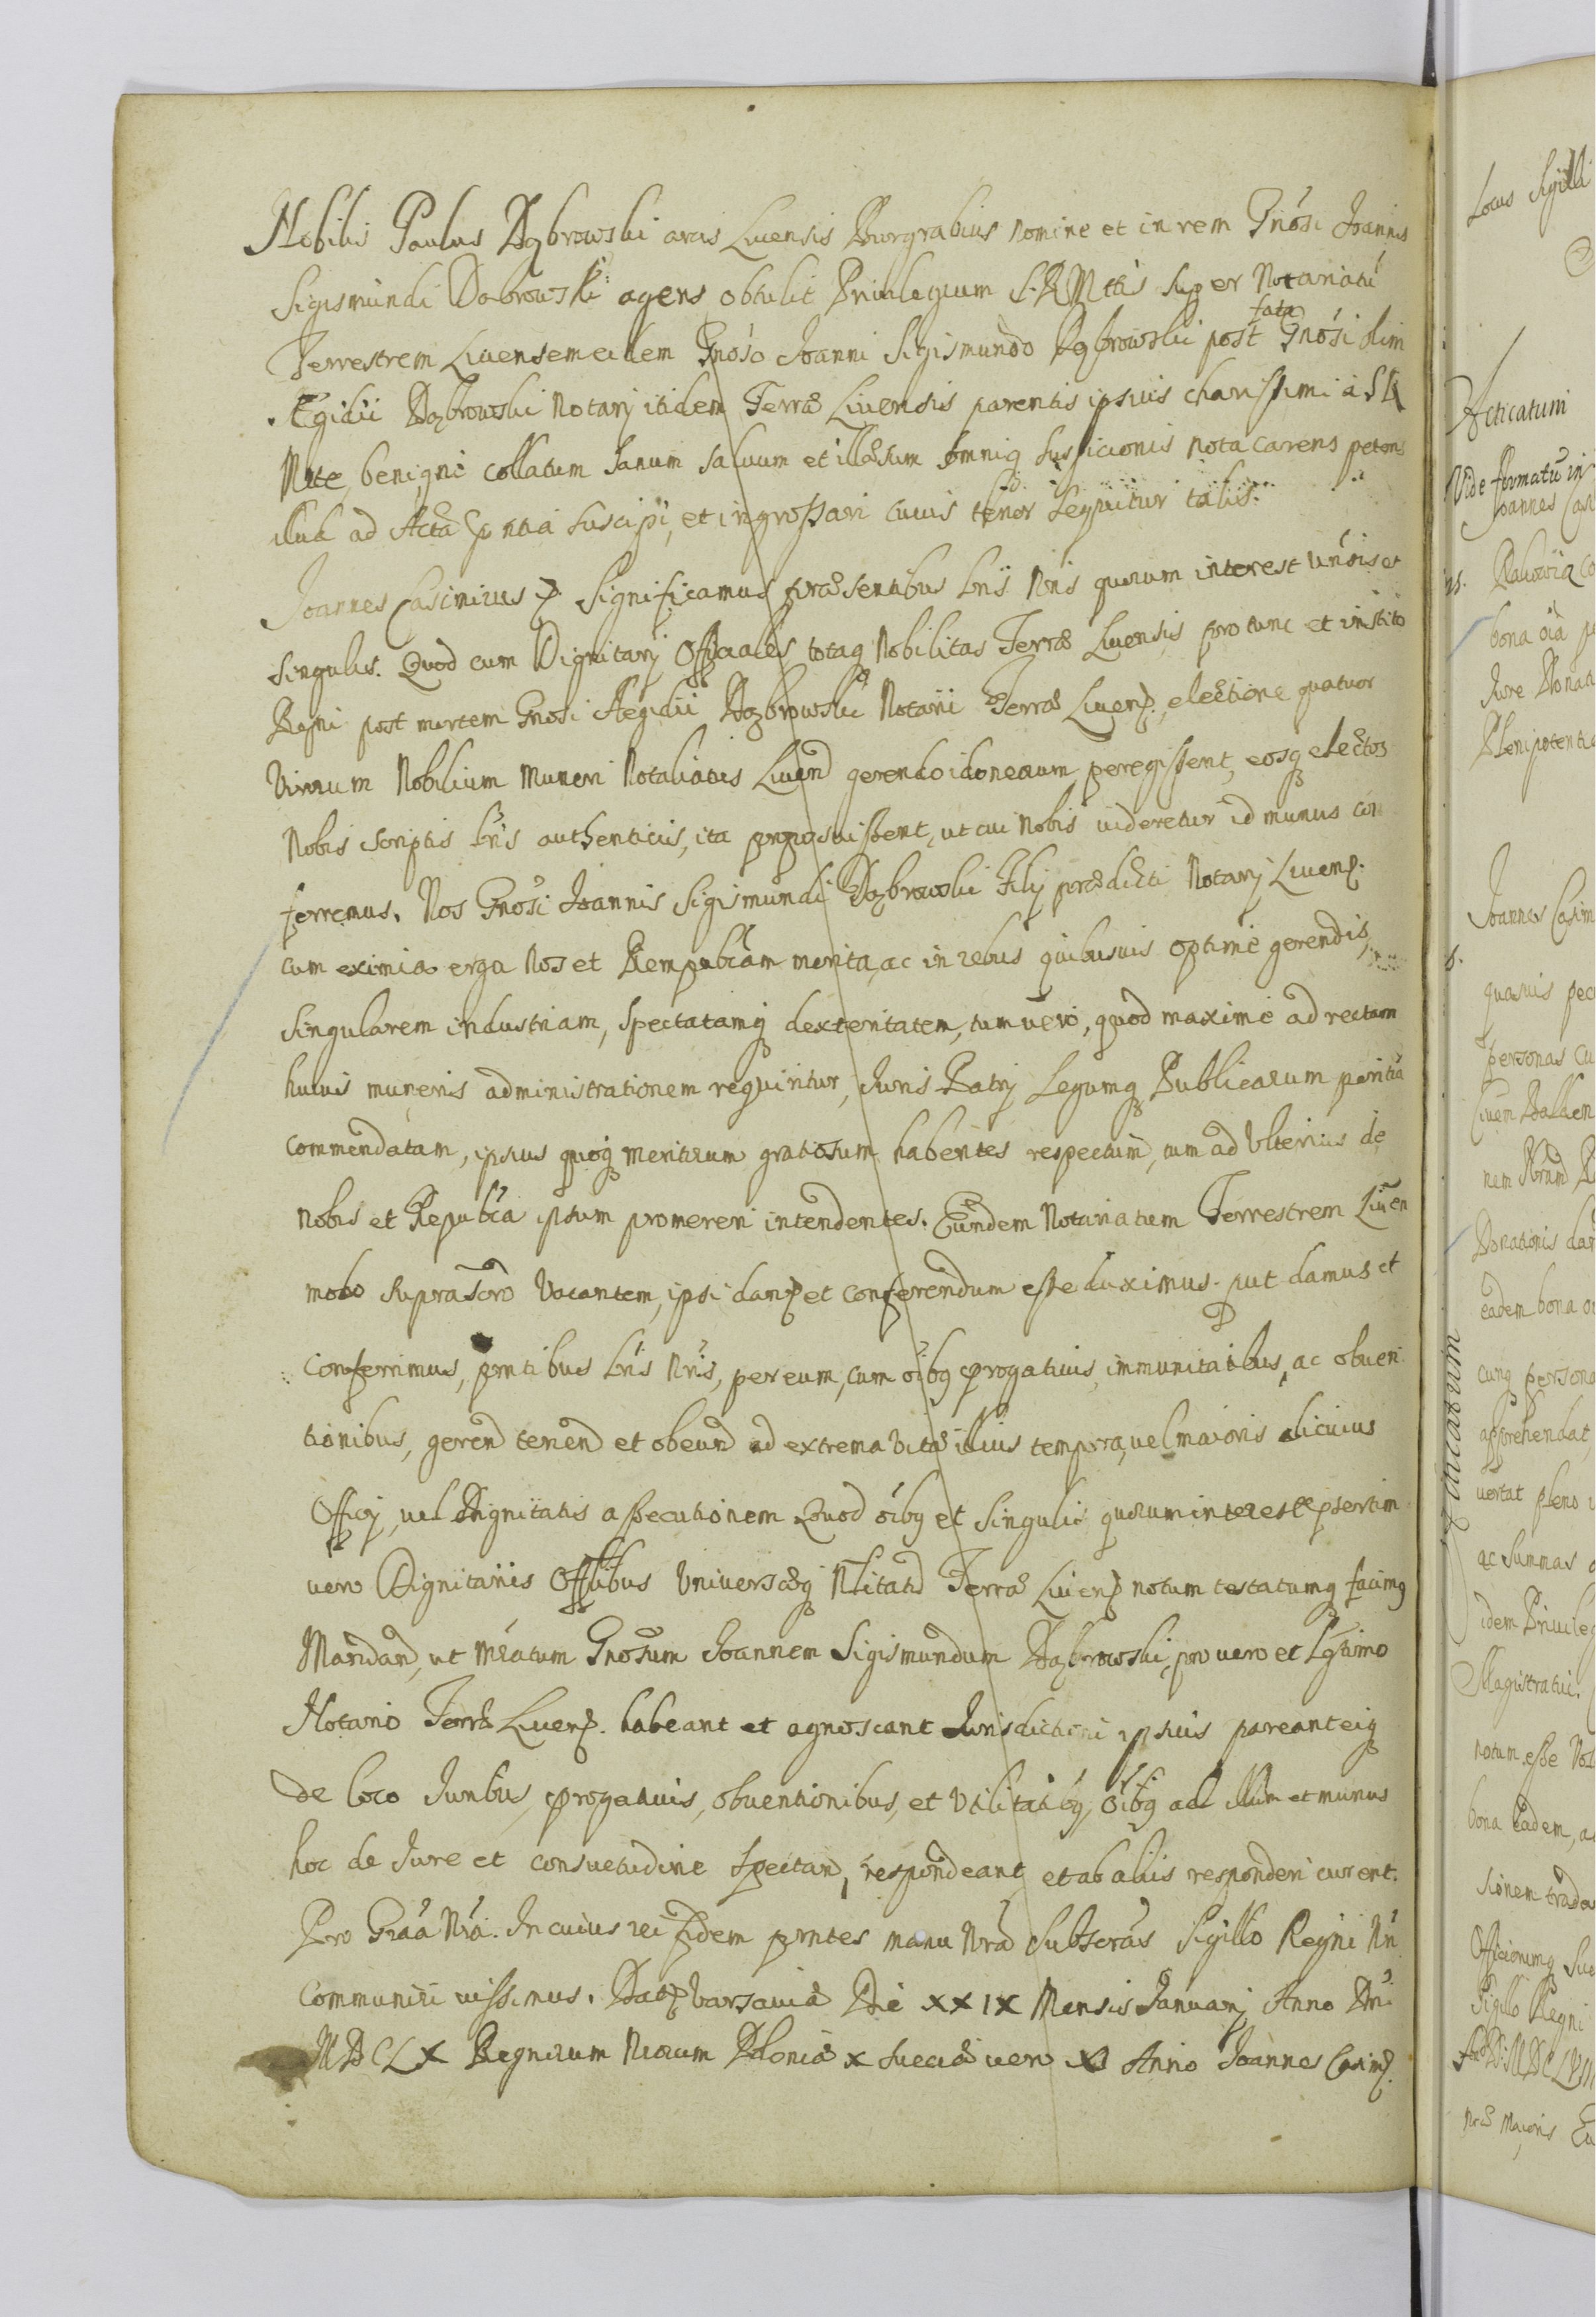 Nobilis Paulus Dąbrowski arcis Liuensis Burgrabius nomine et in rem Gnósi Joannis
Sigismundi Dąbrowski agens obtulit Priuilegium S. R. Mttis super Notariatú
fata
Terrestrem Liuensem eidem Gnóso Joanni Sigismundo Dąbrowski post Gnósi olim
Ægidii Dąbrowski Notarÿ itidem Terræ Liuensis parentis ipsius charissimi à S R
Mtte benigne collatum sanum saluum et illæsum omniq suspicionis nota carens petens
illud ad Acta pntia suscipi, et ingrossari cuius tenor sequitur talis.
Joannes Casimirus Significamus præsentibus Lris Nris quorum interest vnisis et
singulis. Quod cum Dignitarÿ Officiales totaq Nobilitas Terræ Liuensis pro tunc et in stito
Regni post mortem Gnosi Aegidii Dąbrowski Notarii Terræ Liuen, electione quatuor
Virorum Nobilium muneri Notariatus Liuen gerendo idoneorum peregissent, eosq electos
Nobis scriptis Lris authenticis, ita proposuissent, ut cui nobis uideretur id munus con
ferremus. Nos Gnósi Joannis Sigismundi Dąbrowski Filÿ prædicti Notarÿ Liuen.
cum eximia erga Nos et Rempublcam merita, ac in rebus quibusuis optime gerendis
singularem industriam, spectatamq dexteritatem, tum uero, quod maxime ad rectam
huius muneris administrationem requiritur, Juris Patrÿ Legumq Publicarum peritiã
commendatam, ipsius quoq meritorum gratiosum habentes respectum, tum ad Vlterius de
nobis et Republca ipsum promereri intendentes. Eundem Notariatum Terrestrem Liuen
modo suprascro Vacantem, ipsi dan et conferendum esse duximus. put damus et
conferimus, pntibus Lris Nris, per eum, cum oibq progatiuis, immunitatibus, ac obuen
tionibus, gerend tenend et obeund ad extrema Vitæ illius tempora, uel maioris alicuius
Officÿ, uel Dignitatis assecutionem Quod oibq et singulis quorum interest psertim
uero Dignitariis Offlibus Vniversæq Nlitati Terræ Liuen notum testatumq facimq
Mandan, ut mratum Gnosum Joannem Sigismundum Dąbrowski, pro uero et Lgtimo
Notario Terræ Liuen. habeant et agnoscant Jurisdictioni ipsius pareant eiq
de loco Juribus, progatiuis, obuentionibus, et Vtilitatibq, oibq ad illum et munus
hoc de Jure et consuetudine spectan, respondeant et ab aliis responderi curent.
Pro Graã Nra. In cuius rei fidem pntes manu Nra Subscras Sigillo Regni Nri
communiri iussimus. Dat Varsauiæ Die XXIX Mensis Januarÿ Anno Dni
MDCLX Regnorum Nrorum Poloniæ X Sueciæ uero XI Anno Joannes Casim.
Locus Sigilli
Acticatum
Vide formatũ in
Joannes Cas
bona oia
Jure Donati
Plenipotentia
Joannes Casim
quouis
personas
nem
Donationis
eadem bona
cunq persona
apprehendat,
uertat pleno
ac summas
idem Priuileg
Magistratui.
notum esse Vol
bona eadem, a
Officiorumq Sue
Sigilo Regni